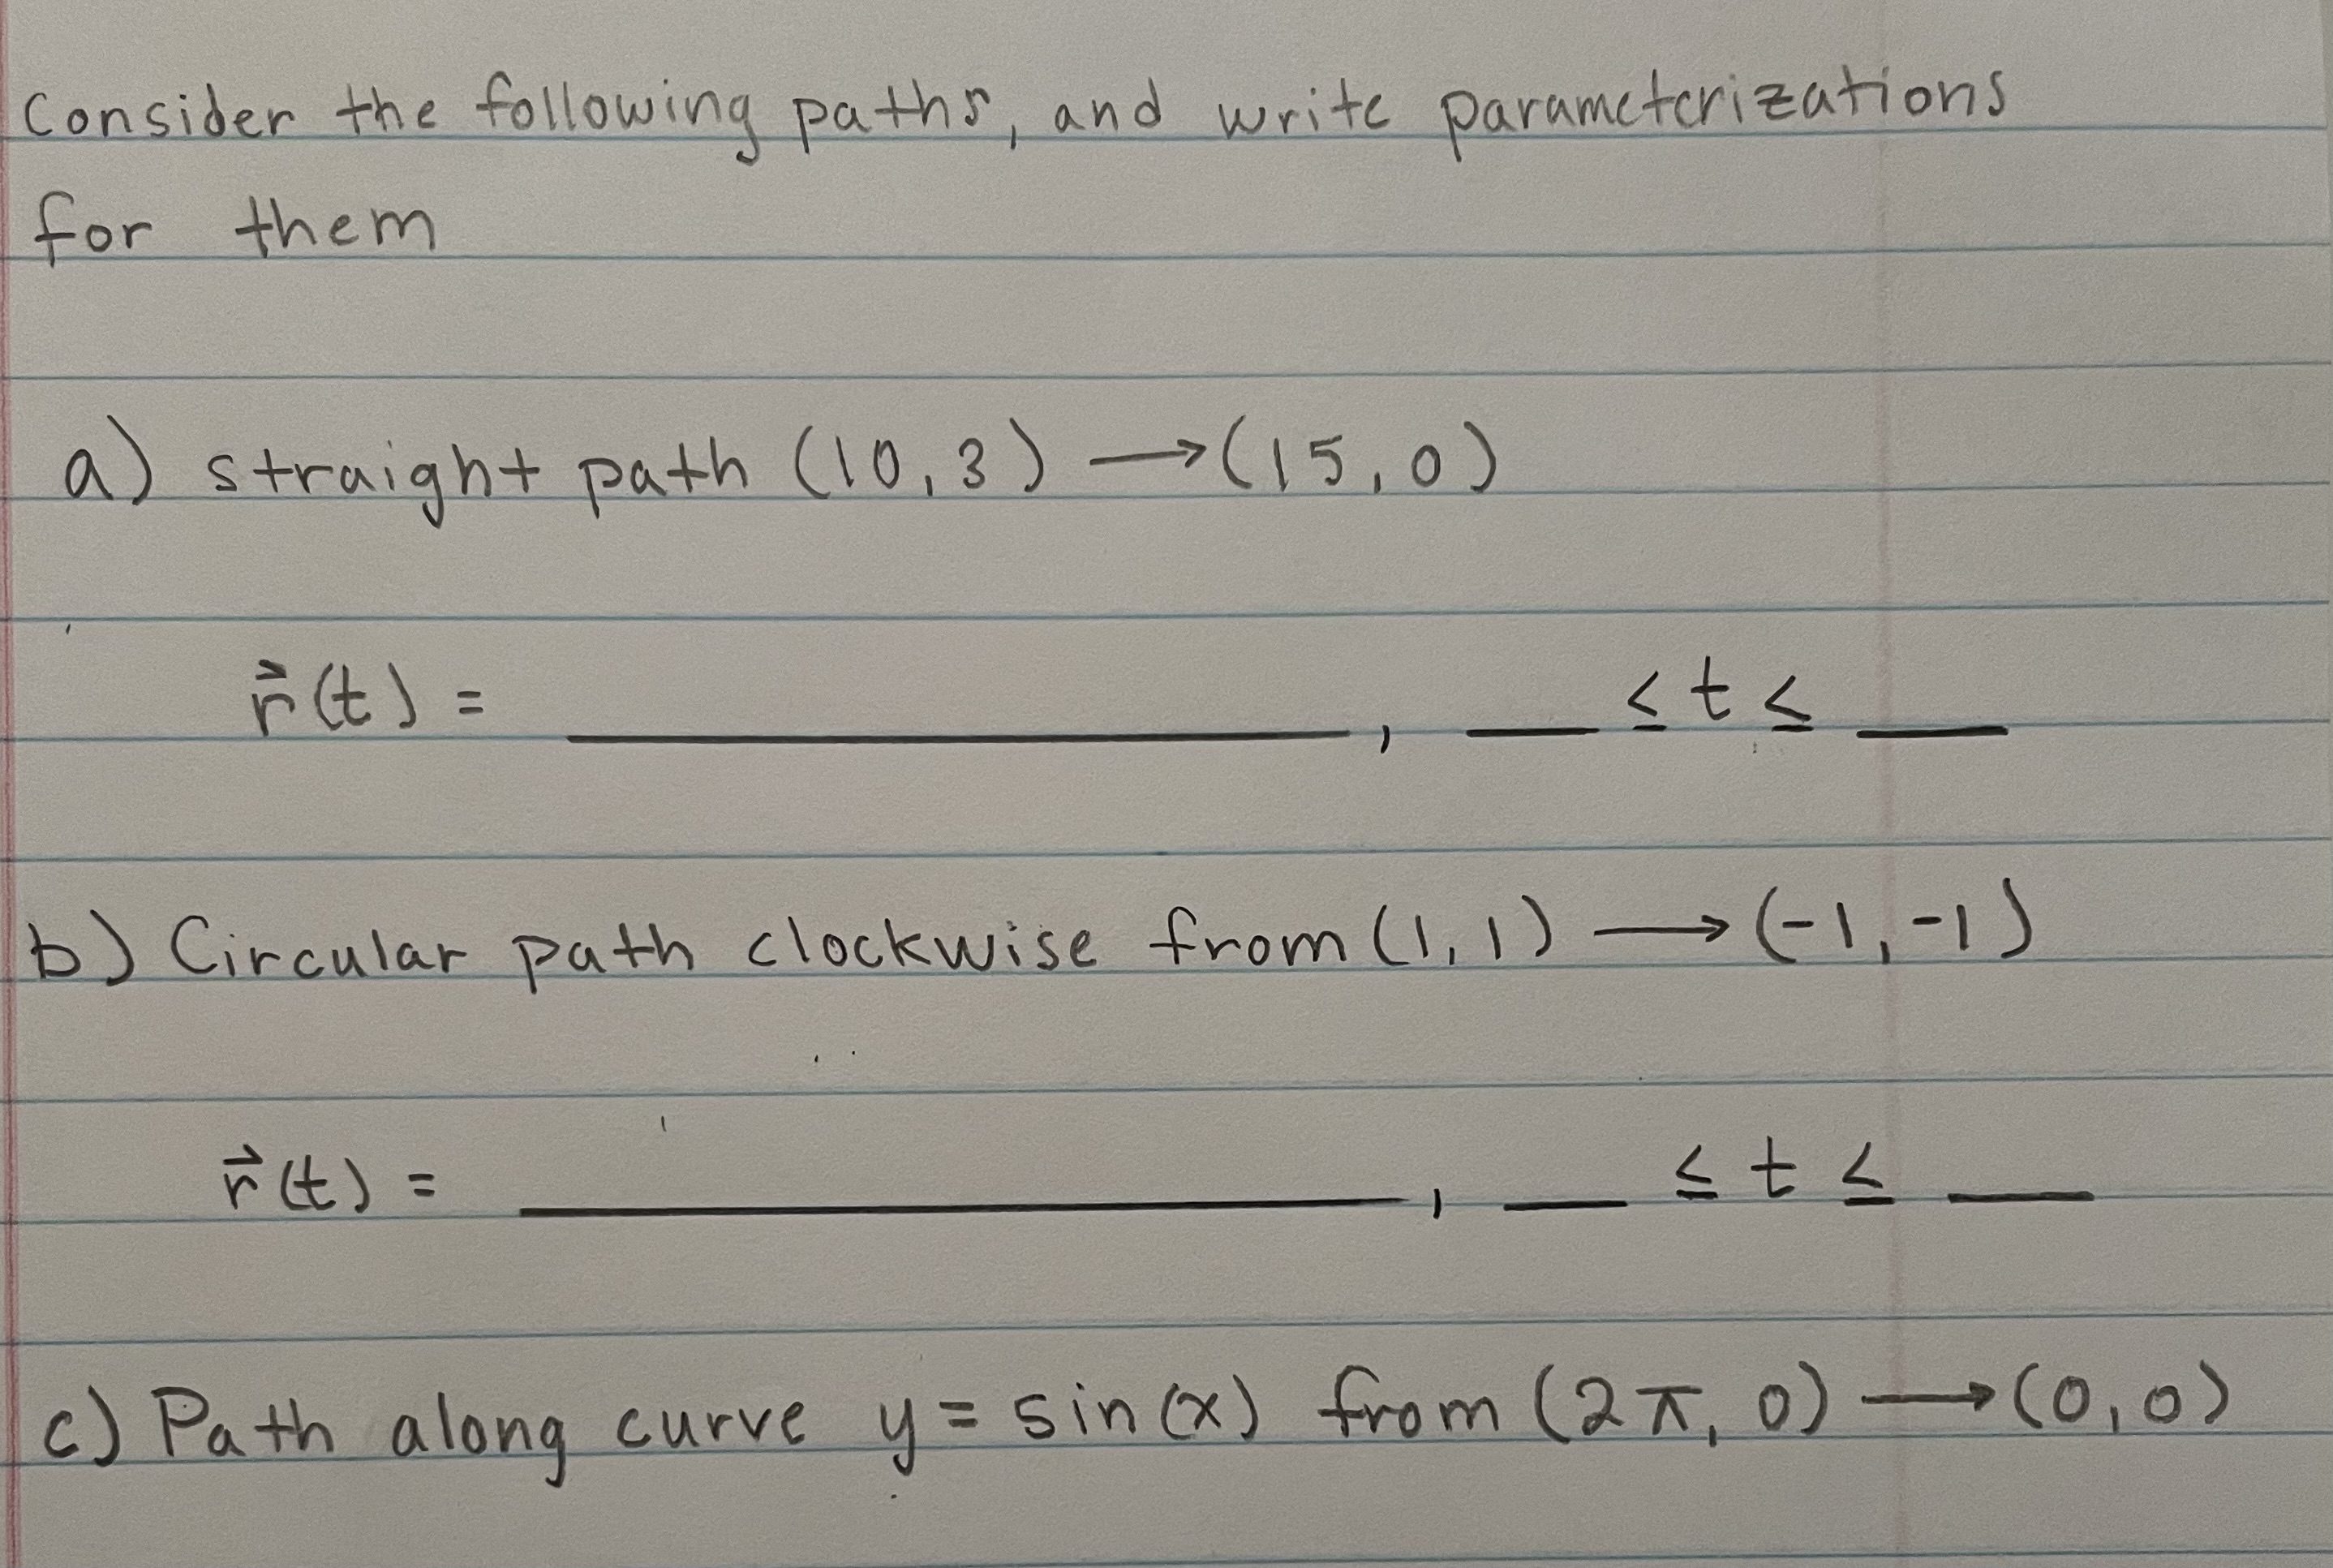 Consider the following paths, and write parameterizations
for them
a) straight path (10,3) → (15,0)
r⃗(t) = ________, __ ≤ t ≤ __
b) Circular path clockwise from (1,1) → (-1,-1)
r⃗(t) = ________, __ ≤ t ≤ __
c) Path along curve y = sin(x) from (2π, 0) → (0,0)